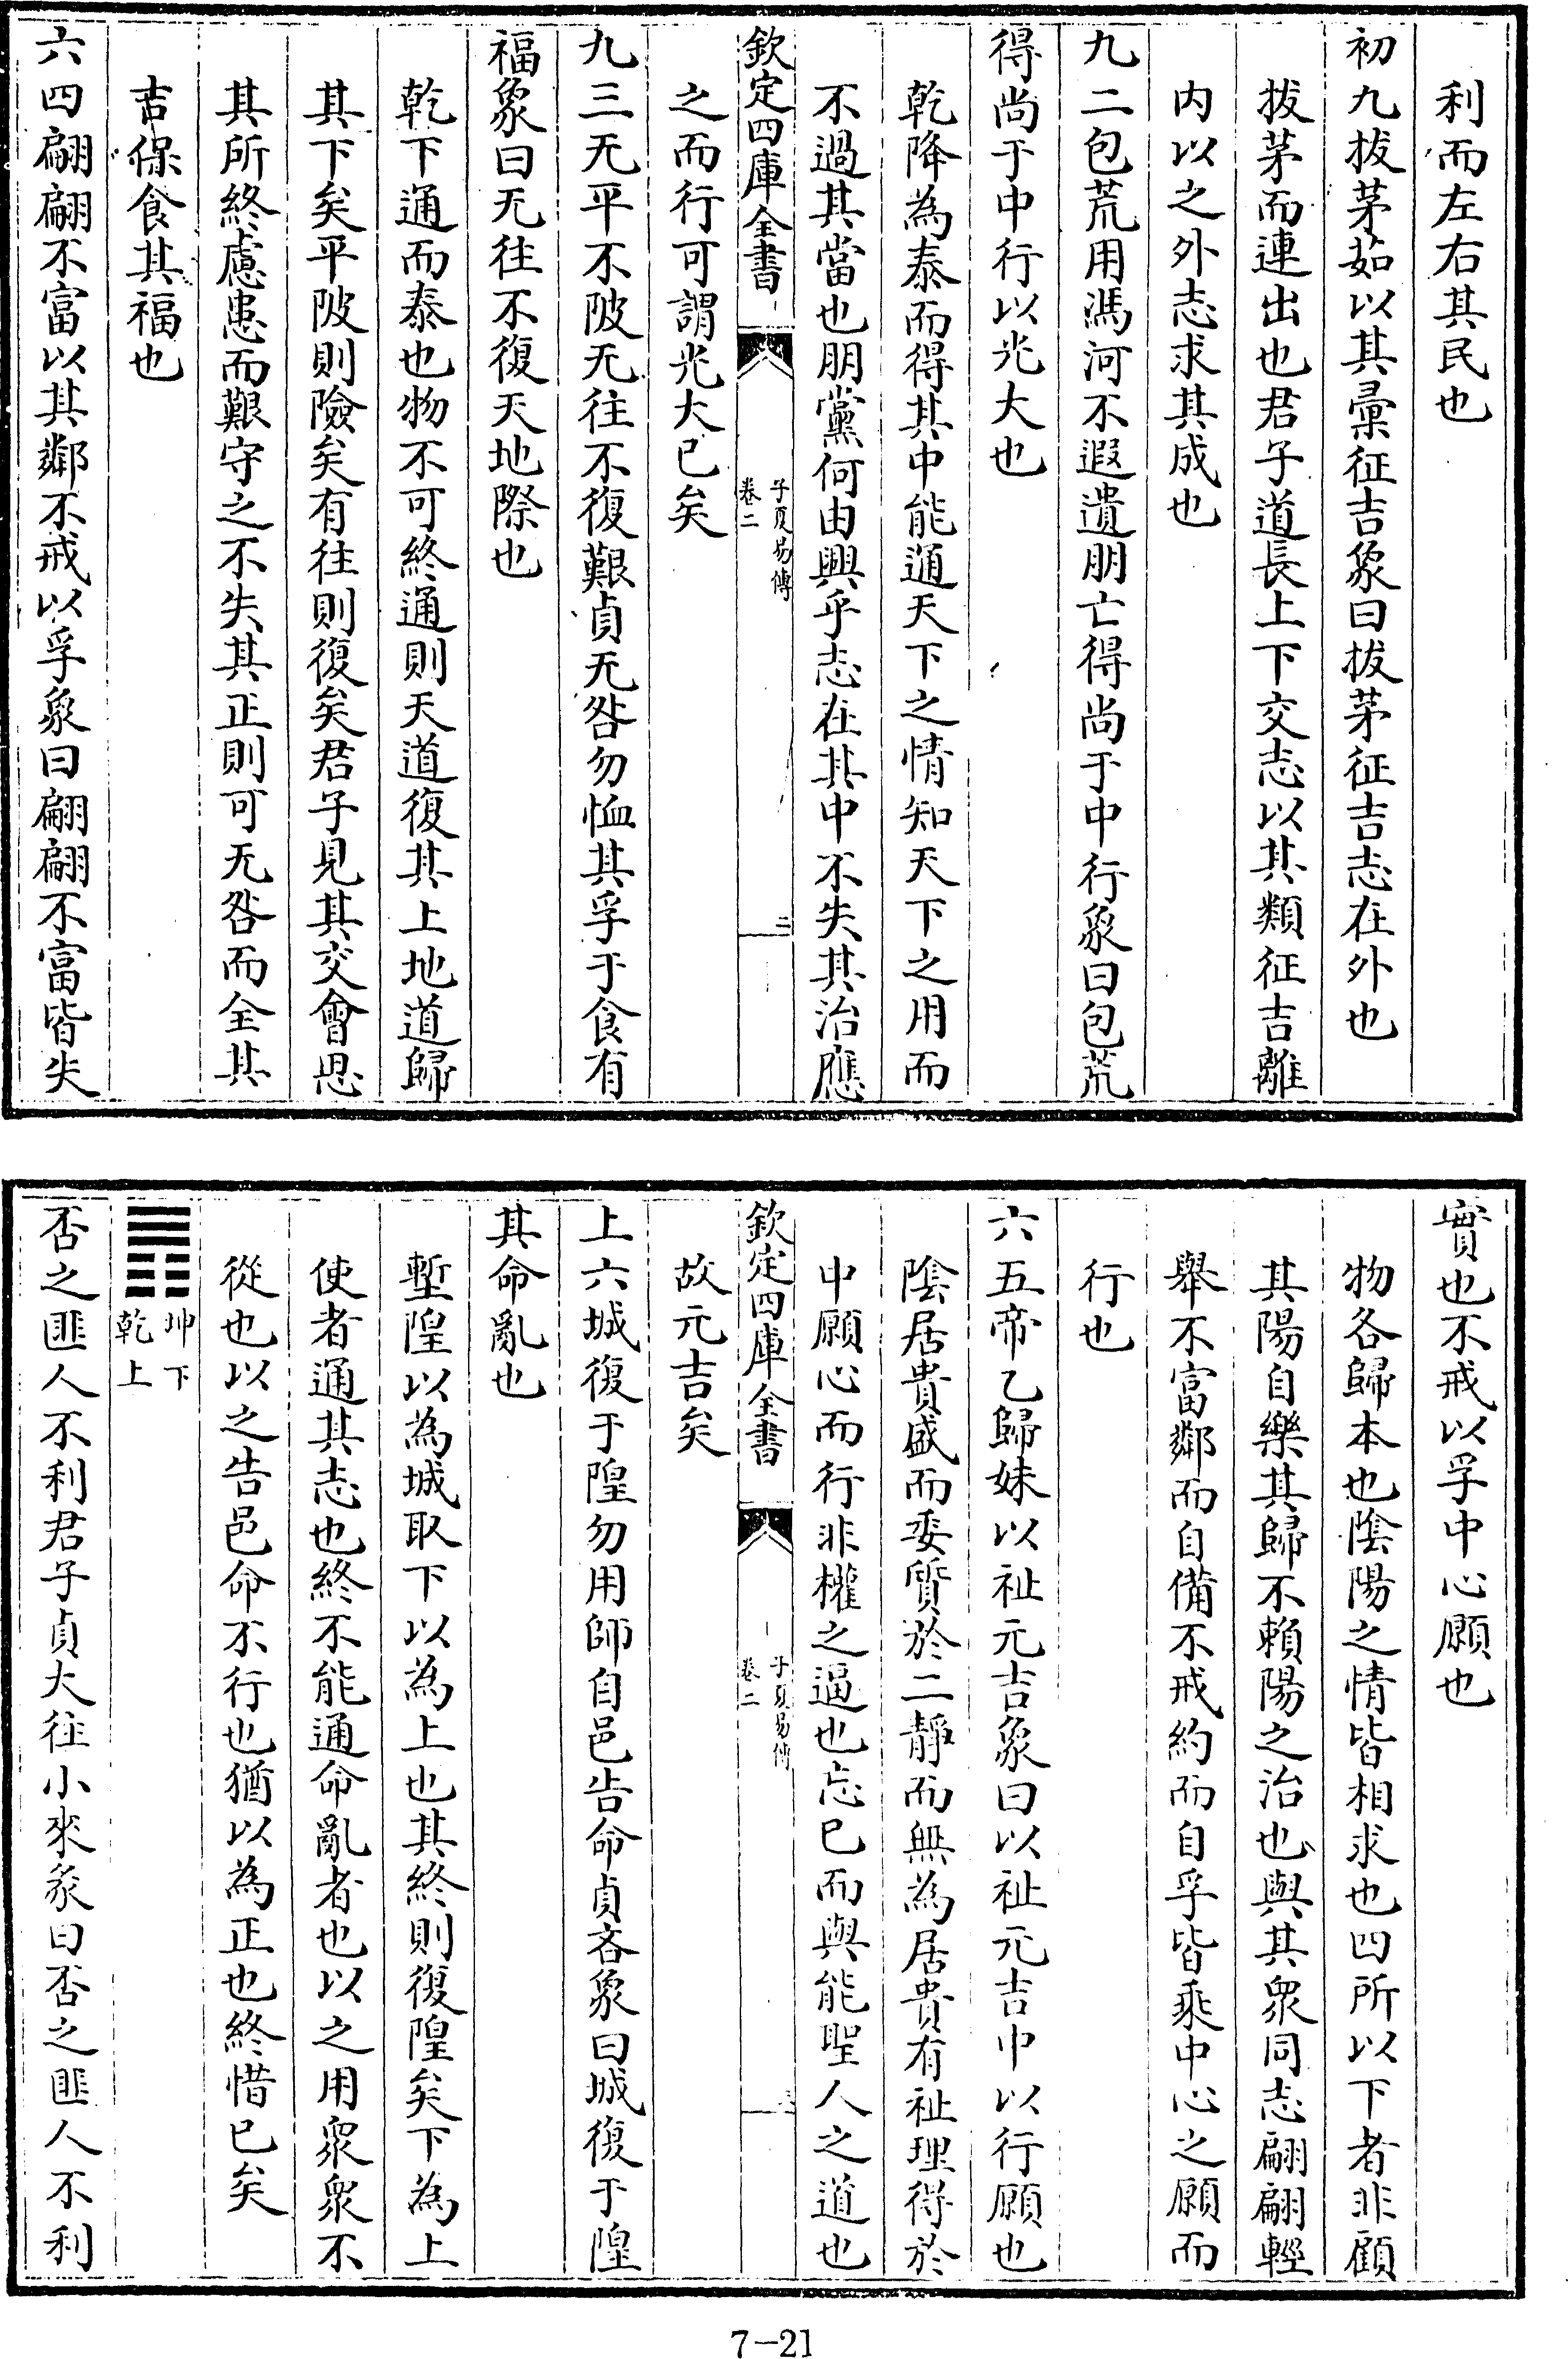 利而左右其民也
初九拔茅茹以其彚征吉象曰拔茅征吉志在外也
拔茅而連出也君子道長上下交志以其類征吉離
内以之外志求其成也
九二包荒用馮河不遐遺朋亡得尚于中行象曰包荒
得尚于中行以光大也
乾降為泰而得其中能通天下之情知天下之用而
不過其當也朋黨何由興乎志在其中不失其治應
欽定四庫全書
子夏易傳
卷二
二
之而行可謂光大已矣
九三无平不陂无往不復艱貞无咎勿恤其孚于食有
福象曰无往不復天地際也
乾下通而泰也物不可終通則天道復其上地道歸
其下矣平陂則險矣有往則復矣君子見其交會思
其所終慮患而艱守之不失其正則可无咎而全其
吉保食其福也
六四翩翩不富以其鄰不戒以孚象曰翩翩不富皆失
實也不戒以孚中心願也
物各歸本也陰陽之情皆相求也四所以下者非顧
其陽自樂其歸不賴陽之治也與其衆同志翩翩輕
舉不富鄰而自備不戒約而自孚皆乘中心之願而
行也
六五帝乙歸妹以祉元吉象曰以祉元吉中以行願也
陰居貴盛而委質於二靜而無為居貴有祉理得於
中願心而行非權之逼也忘已而與能聖人之道也
欽定四庫全書
子夏易傳
卷二
三
故元吉矣
上六城復于隍勿用師自邑告命貞吝象曰城復于隍
其命亂也
塹隍以為城取下以為上也其終則復隍矣下為上
使者通其志也終不能通命亂者也以之用衆衆不
從也以之告邑命不行也猶以為正也終惜已矣
坤下
乾上
否之匪人不利君子貞大往小來彖曰否之匪人不利
7-21